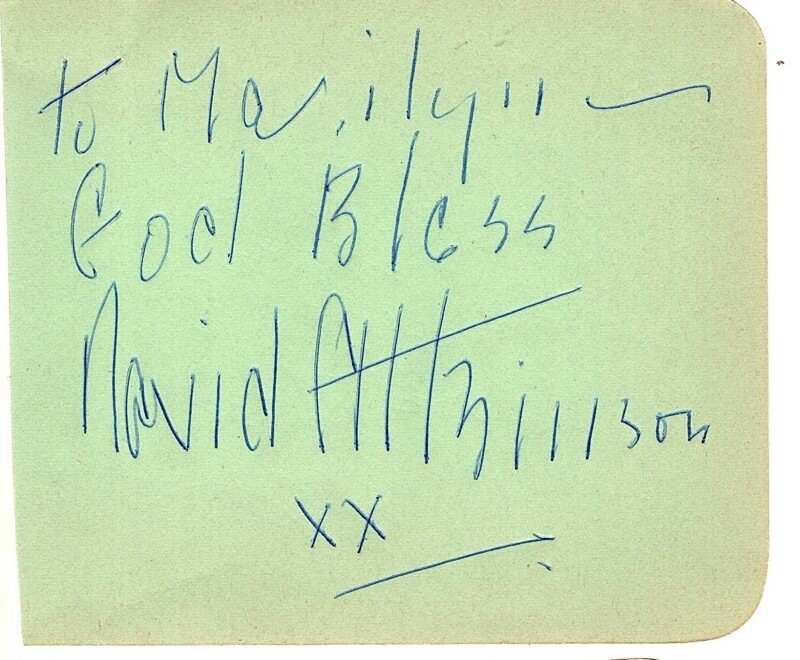 To Marilyn
God Bless
David Attkinson
xx